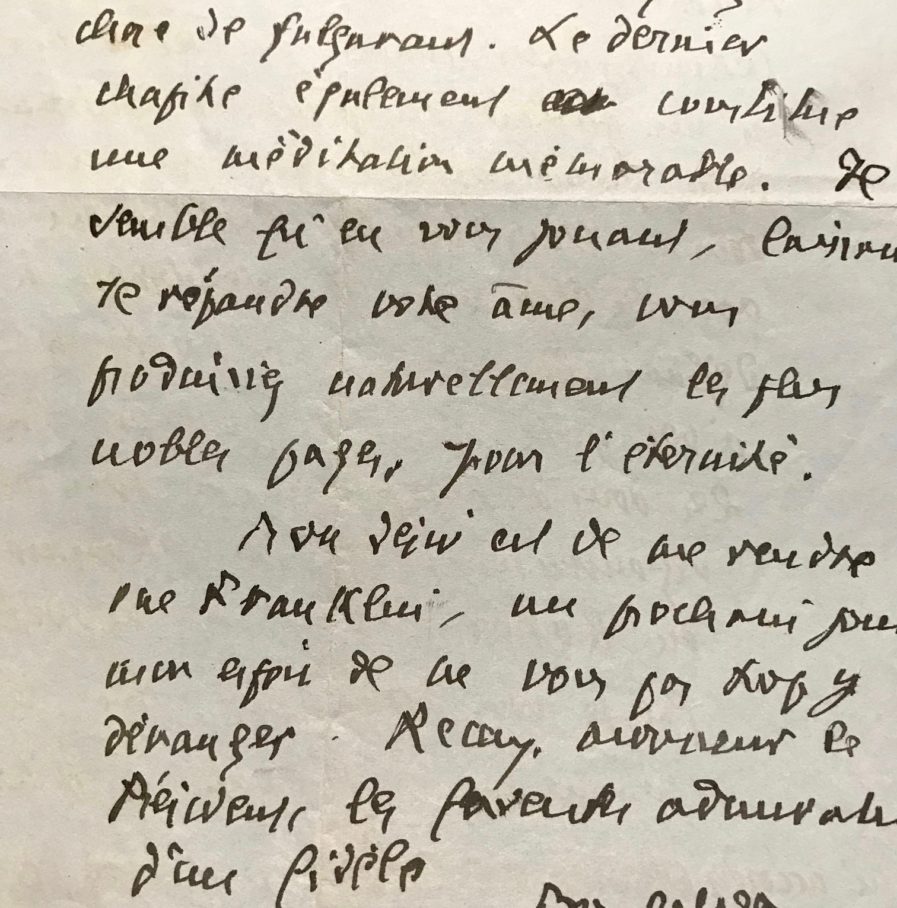 chose de fulgurant. Le dernier
chapitre également constitue
une méditation mémorable. Je
semble qu'en vous jouant, laissant
se répandre votre âme, vous
produisiez naturellement les plus
nobles pages, pour l'éternité.
Mon désir est de me rendre
rue Franklin, un prochain jour
mon espoir de ne vous pas trop y
déranger. Recevez, monsieur le
Président, les fervents admirat
d'une fidèle